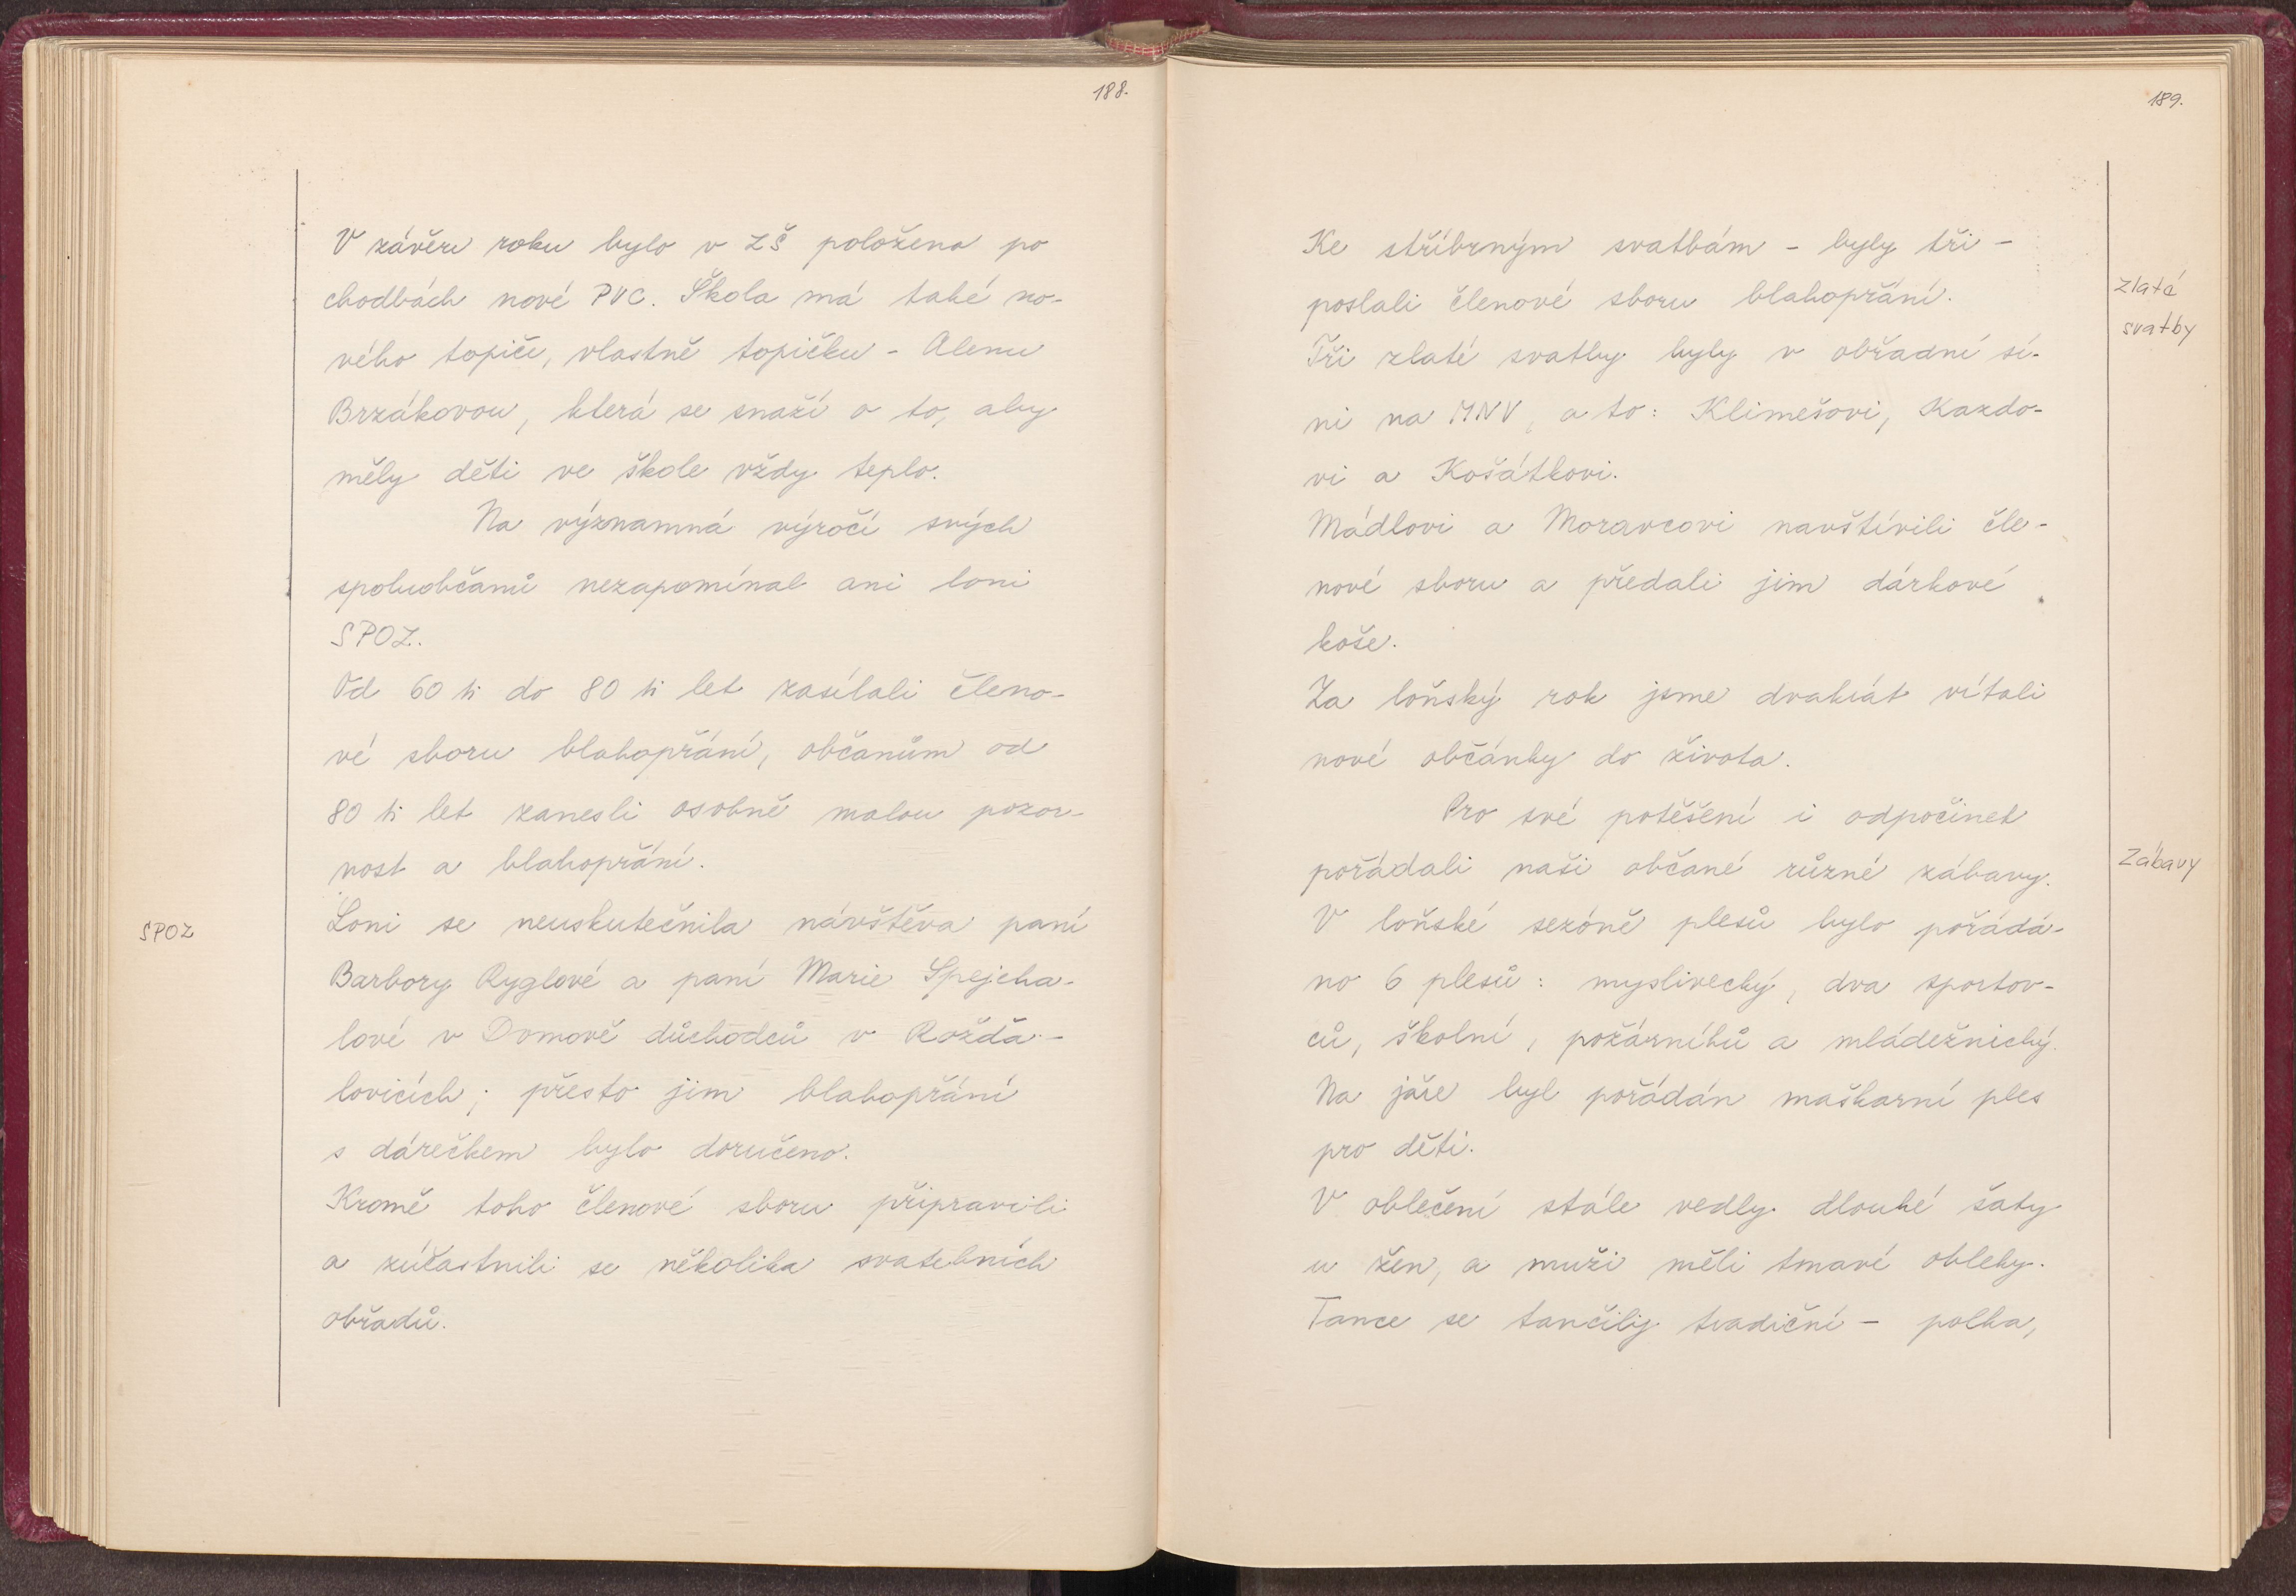 188.
V závěru roku bylo v ZŠ položeno po
chodbách nové PVC. Škola má také no-
vého topiče, vlastně topičku - Alenu
Brzákovou, která se snaží o to, aby
měly děti ve škole vždy teplo.
Na významná výročí svých
spoluobčanů nezapomínal ani loni
SPOZ.
Od 60 ti do 80 ti let zasílali členo-
vé sboru blahopřání, občanům od
80 ti let zanesli osobně malou pozor-
nost a blahopřání.
SPOZ
Loni se neuskutečnila návštěva paní
Barbory Ryglové a paní Marie Spejcha-
lové v Domově důchodců v Rožďa-
lovicích; přesto jim blahopřání
s dárečkem bylo doručeno.
Kromě toho členové sboru připravili
a zúčastnili se několika svatebních
obřadů.
189.
Ke stříbrným svatbám - byly tři -
poslali členové sboru blahopřání.
Zlaté
svatby
Tři zlaté svatby byly v obřadní sí-
ni na MNV, a to: Klimešovi, Kazdo-
vi a Košátkovi.
Mádlovi a Moravcovi navštívili čle-
nové sboru a předali jim dárkové
koše.
Za loňský rok jsme dvakrát vítali
nové občánky do života.
Pro své potěšení i odpočinek
Zábavy
pořádali naši občané různé zábavy.
V loňské sezóně plesů bylo pořádá-
no 6 plesů: myslivecký, dva sportov-
ců, školní, požárníků a mládežnický.
Na jaře byl pořádán maškarní ples
pro děti.
V oblečení stále vedly dlouhé šaty
u žen, a muži měli tmavé obleky.
Tance se tančily tradiční - polka,